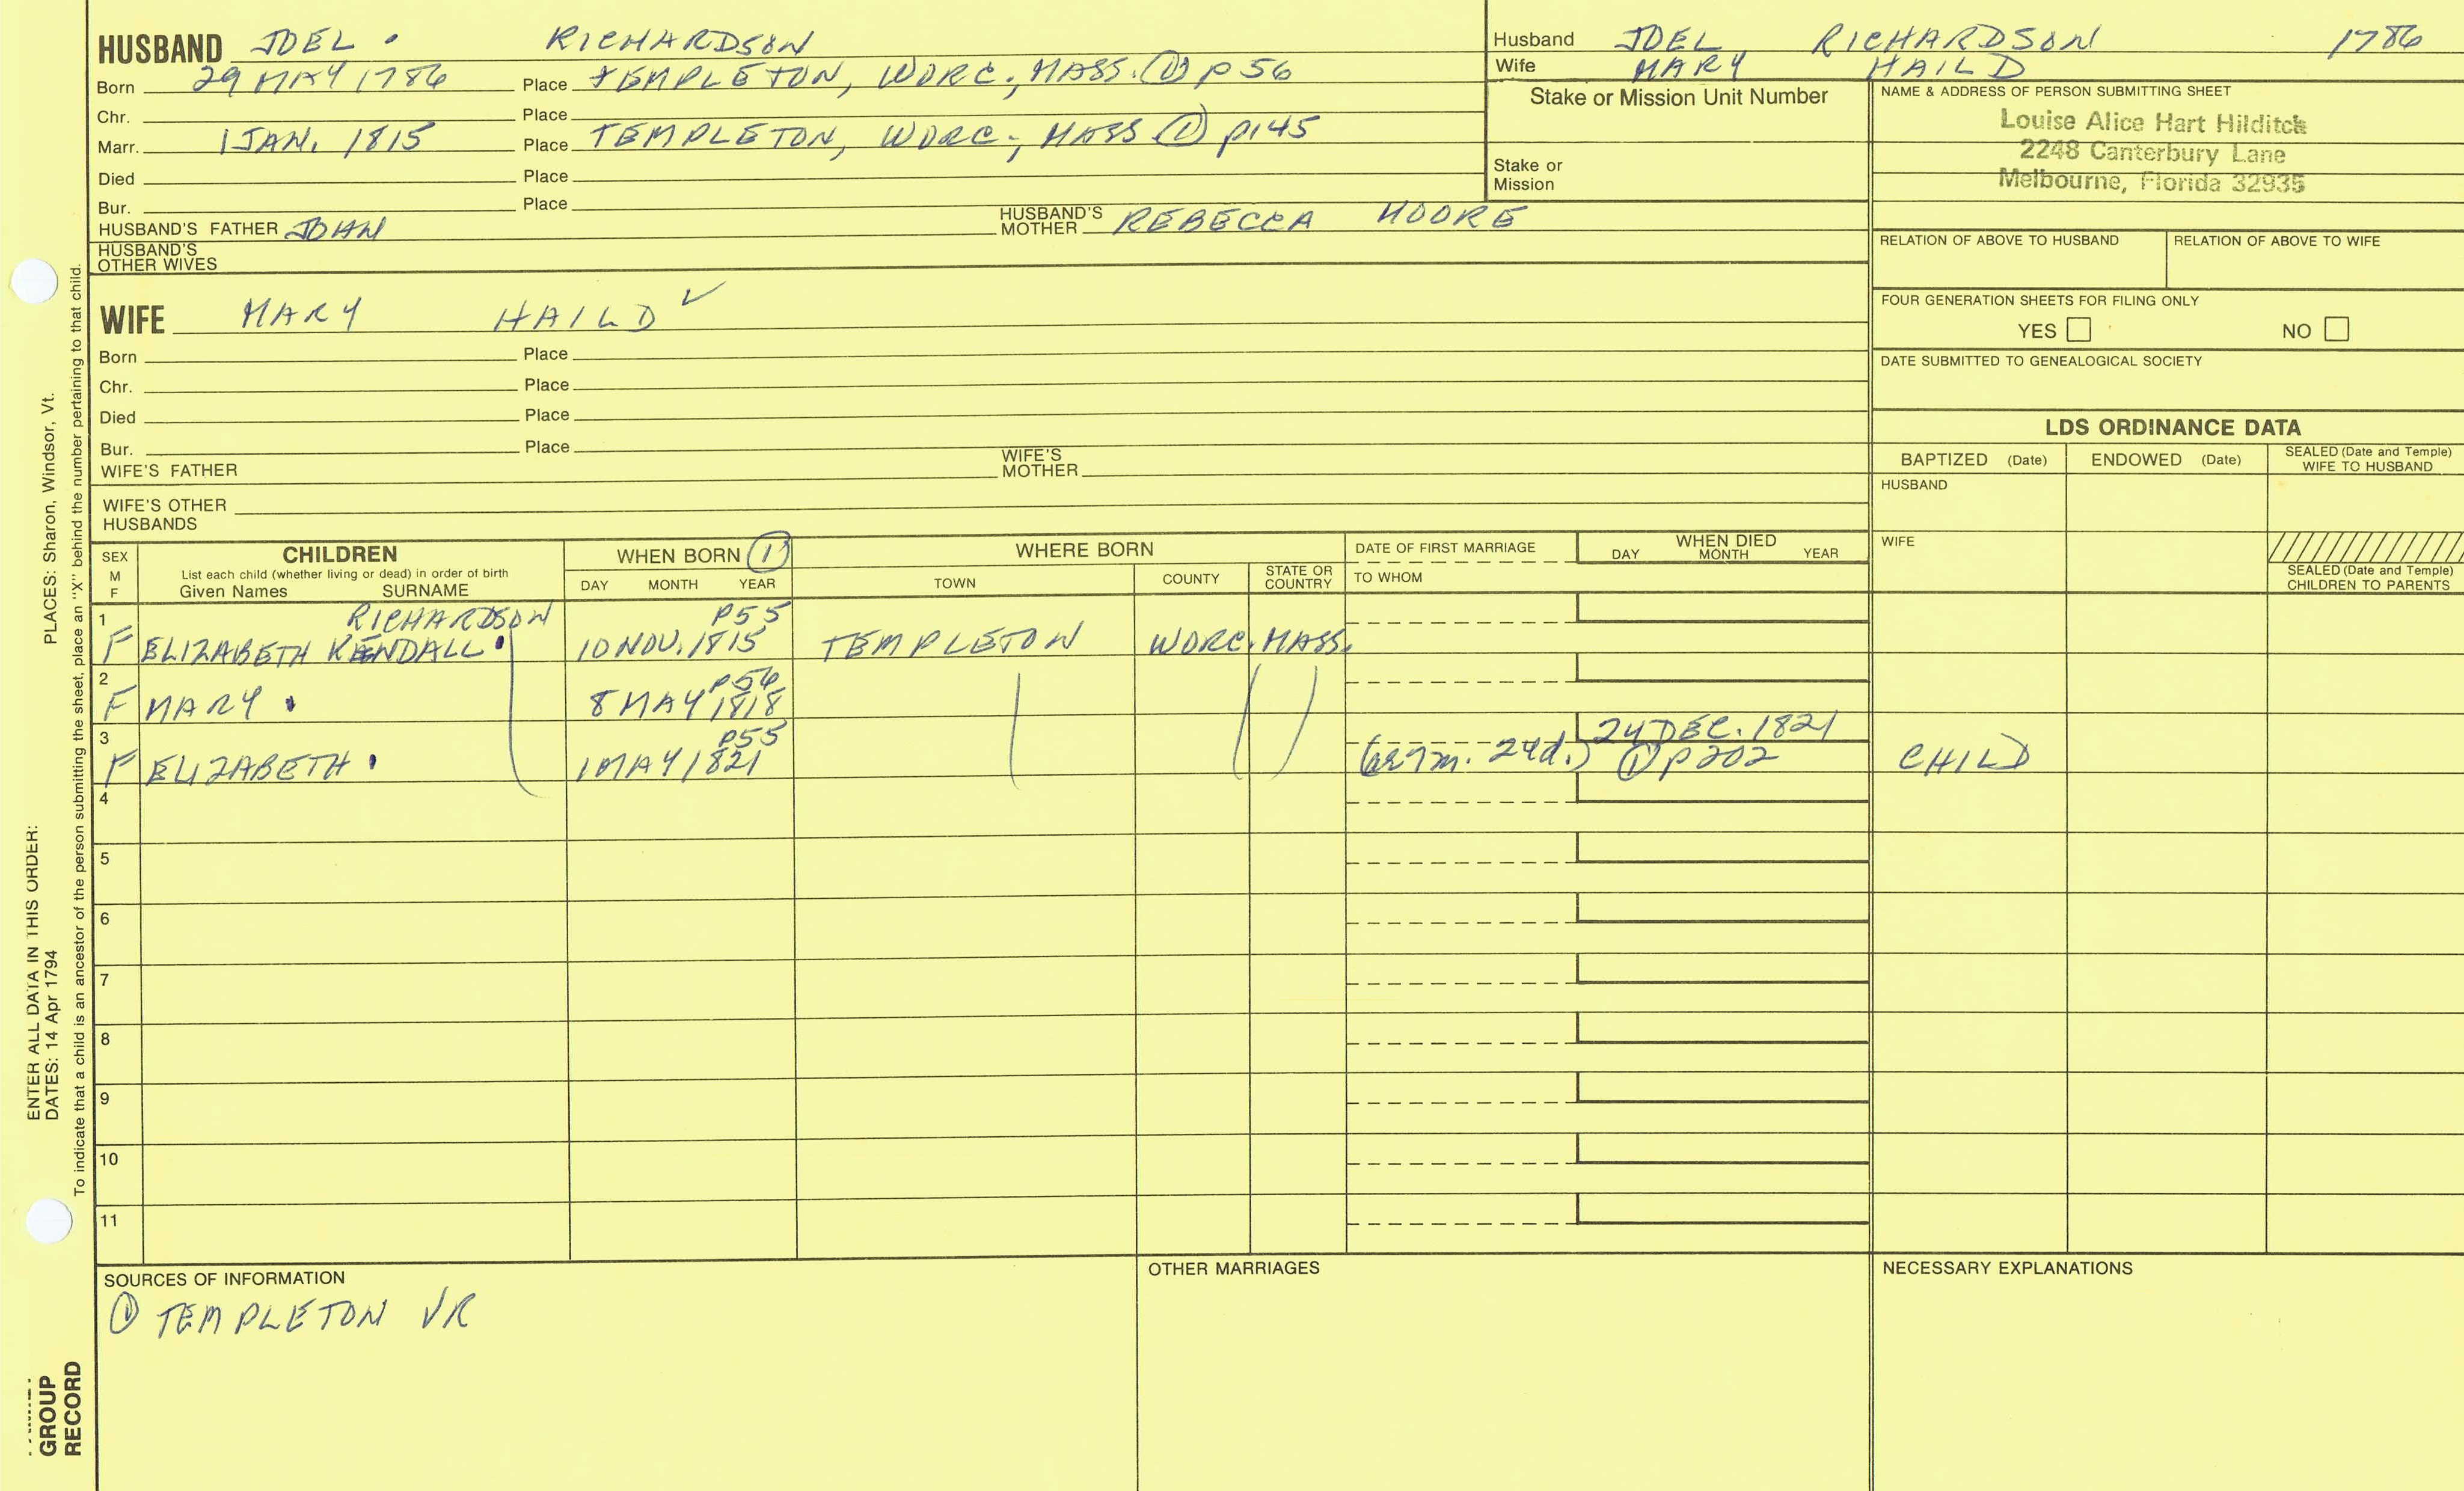 HUSBAND JOEL . RICHARDSON
Born 29 MAY 1786 Place TEMPLETON, WORC., MASS. ① P 56
Chr. Place
Marr. 1 JAN. 1815 Place TEMPLETON, WORC., MASS ① p145
Died Place
Bur. Place
HUSBAND'S FATHER JOHN HUSBAND'S MOTHER REBECCA MOORE
HUSBAND'S OTHER WIVES
WIFE MARY HAILD ✓
Born Place
Chr. Place
Died Place
Bur. Place
WIFE'S FATHER WIFE'S MOTHER
WIFE'S OTHER HUSBANDS
Husband JOEL RICHARDSON 1786
Wife MARY HAILD
Stake or Mission Unit Number
Stake or Mission
NAME & ADDRESS OF PERSON SUBMITTING SHEET
Louise Alice Hart Hilditch
2248 Canterbury Lane
Melbourne, Florida 32935
RELATION OF ABOVE TO HUSBAND RELATION OF ABOVE TO WIFE
FOUR GENERATION SHEETS FOR FILING ONLY
YES NO
DATE SUBMITTED TO GENEALOGICAL SOCIETY
LDS ORDINANCE DATA
BAPTIZED (Date) ENDOWED (Date) SEALED (Date and Temple) WIFE TO HUSBAND
HUSBAND
WIFE
SEALED (Date and Temple) CHILDREN TO PARENTS
SEX M F
CHILDREN
List each child (whether living or dead) in order of birth
Given Names SURNAME
WHEN BORN ①
DAY MONTH YEAR
WHERE BORN
TOWN COUNTY STATE OR COUNTRY
DATE OF FIRST MARRIAGE
TO WHOM
WHEN DIED
DAY MONTH YEAR
1 RICHARDSON P55
F ELIZABETH KENDALL . 10 NOV. 1815 TEMPLETON WORC. MASS.
2 P56
F MARY . 8 MAY 1818
3 P55 24 DEC. 1821
F ELIZABETH . 1 MAY 1821 24d.) ① P202 CHILD
4
5
6
7
8
9
10
11
SOURCES OF INFORMATION
① TEMPLETON VR
OTHER MARRIAGES
NECESSARY EXPLANATIONS
PLACES: Sharon, Windsor, Vt.
To indicate that a child is an ancestor of the person submitting the sheet, place an "X" behind the number pertaining to that child.
ENTER ALL DATA IN THIS ORDER:
DATES: 14 Apr 1794
GROUP
RECORD